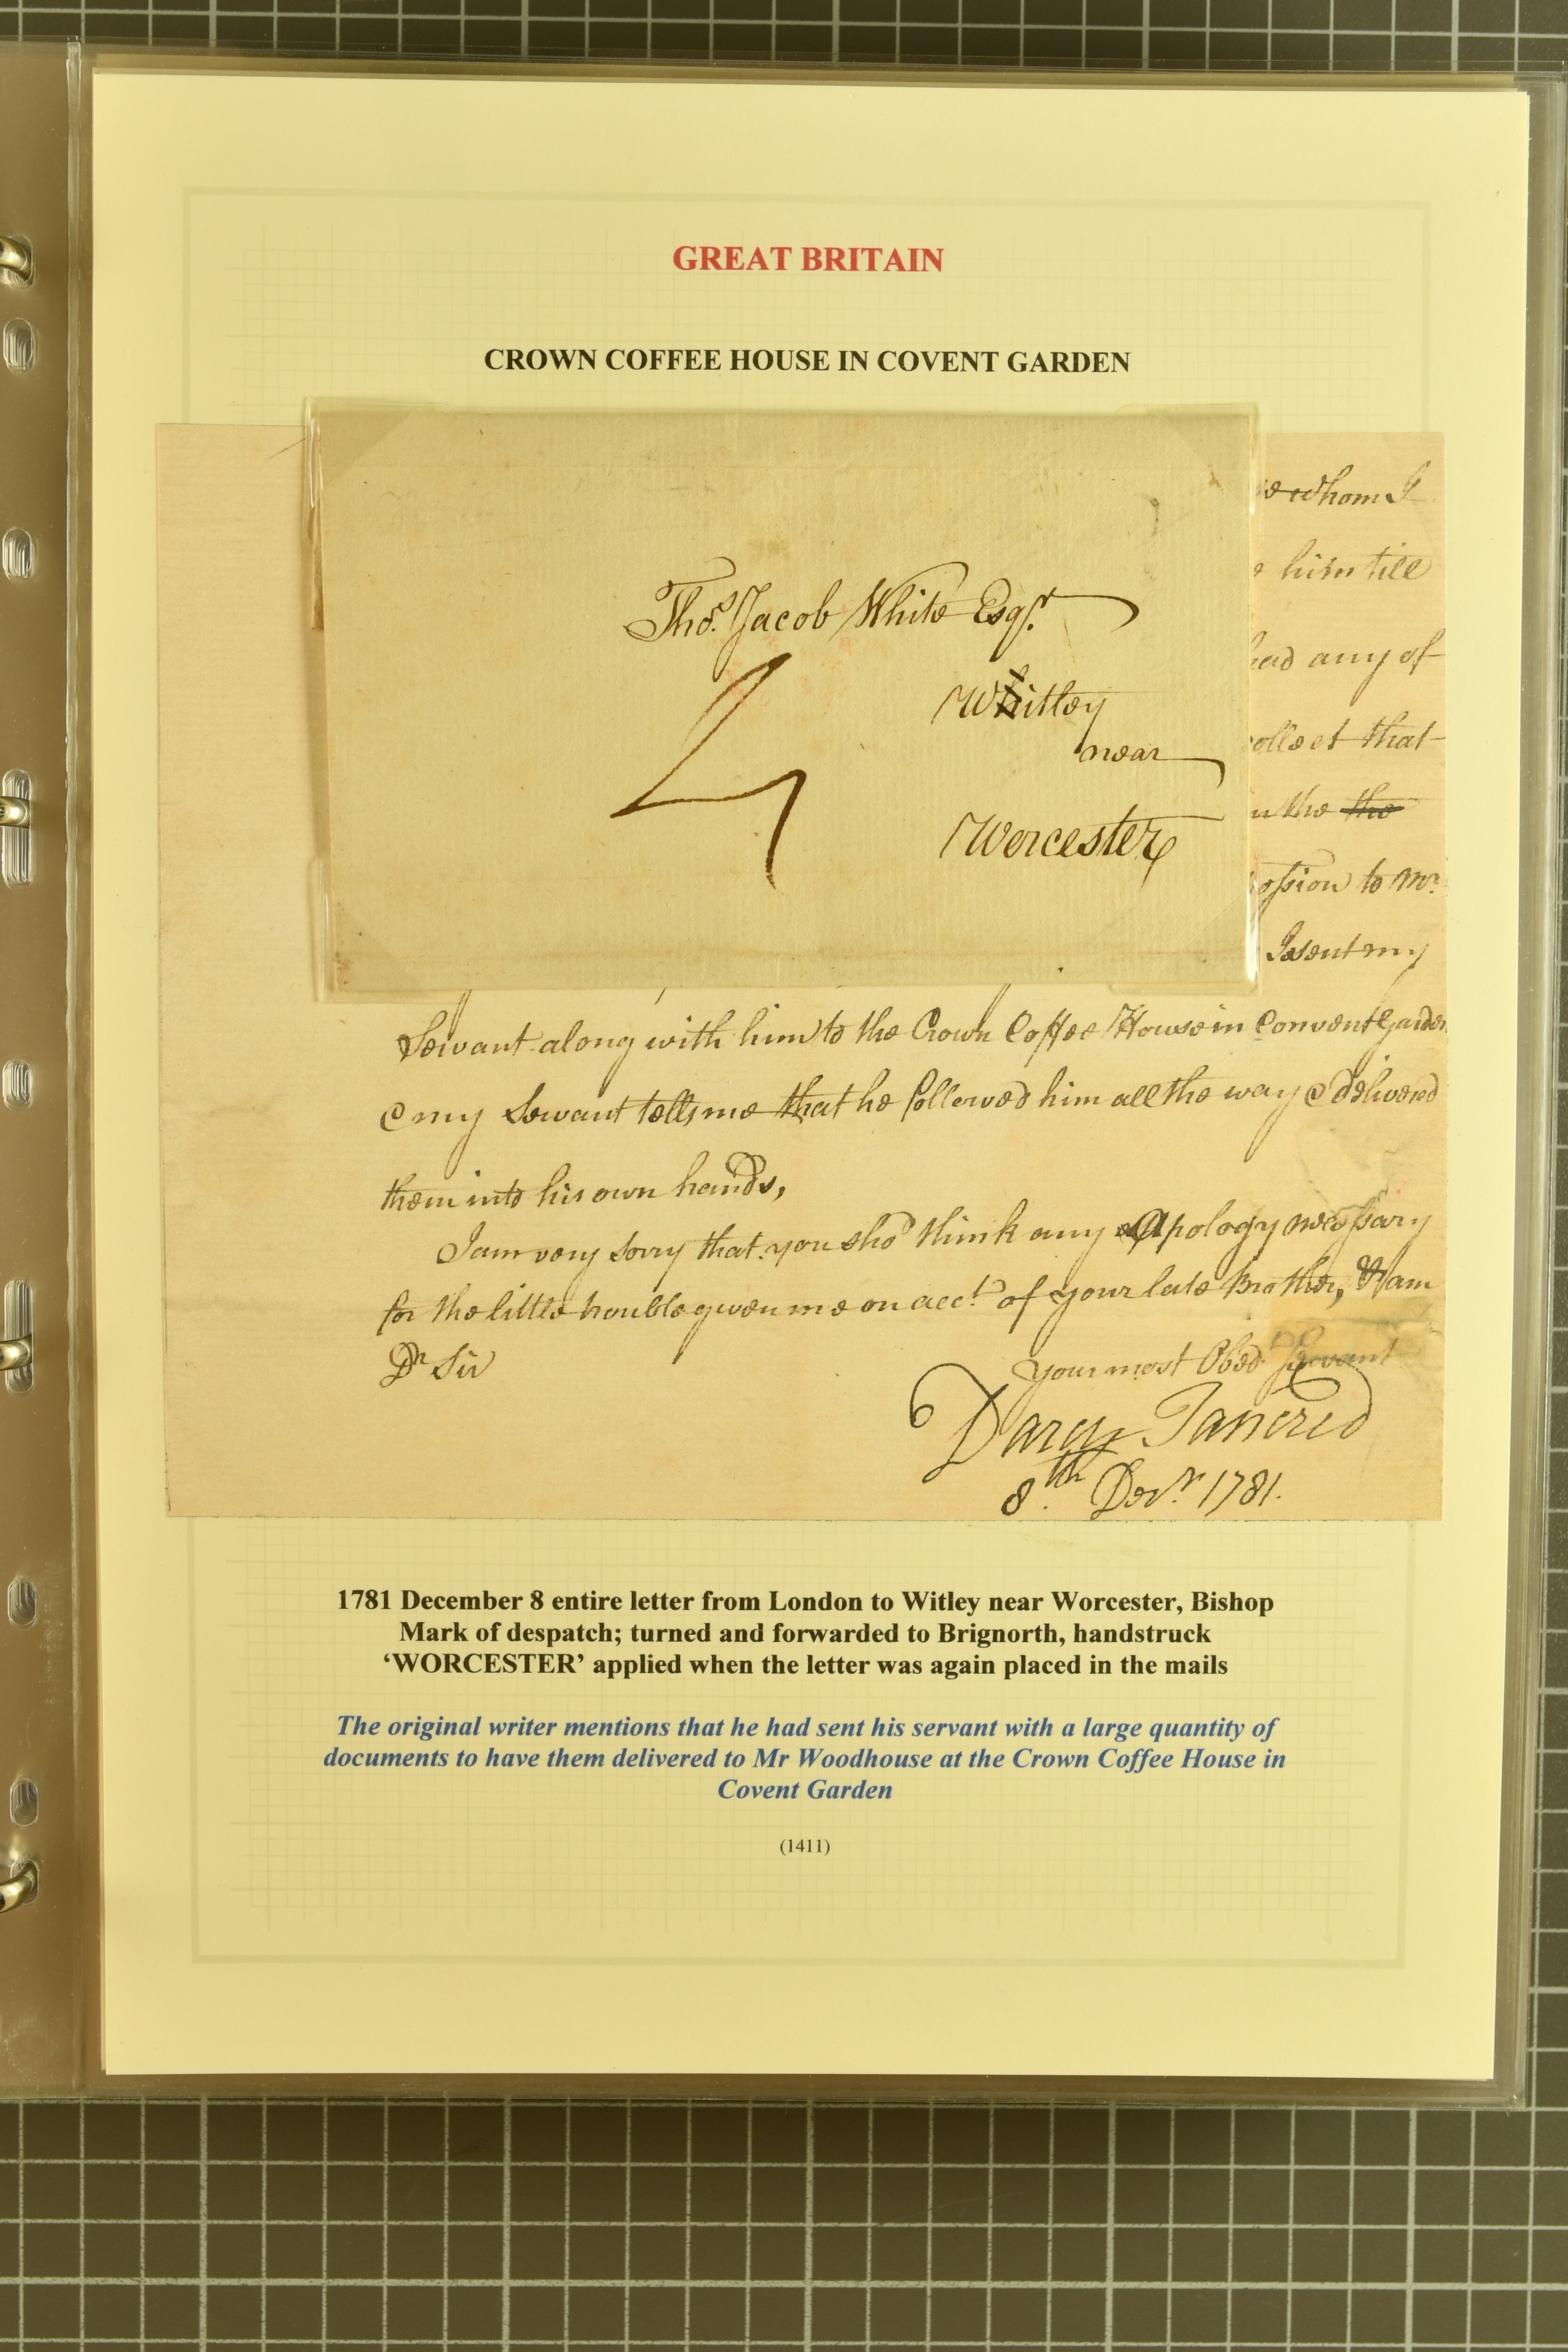 GREAT BRITAIN
CROWN COFFEE HOUSE IN COVENT GARDEN
Thos. Jacob White Esqr.
Whitley
near
Worcester
whom I
him till
any of
that
the the
to Mr.
I sent my
Servant along with him to the Crown Coffee House in Convent Garden
& my Servant tells me that he followed him all the way & delivered
them into his own hands,
I am very sorry that you shod think any Apology necessary
for the little trouble given me on acct. of your late Brother, & am
Dr Sir
your most Obed Servant
Darcy Tancred
8th. Decr. 1781.
1781 December 8 entire letter from London to Witley near Worcester, Bishop
Mark of despatch; turned and forwarded to Brignorth, handstruck
‘WORCESTER’ applied when the letter was again placed in the mails
The original writer mentions that he had sent his servant with a large quantity of
documents to have them delivered to Mr Woodhouse at the Crown Coffee House in
Covent Garden
(1411)